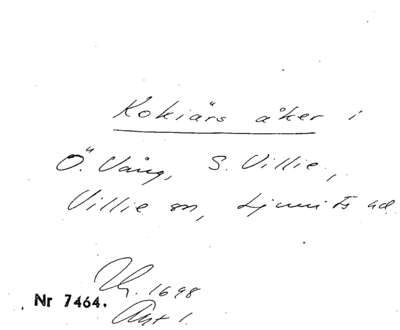 Kokiärs åker i
Ö. Vång, S. Villie,
Villie sn, Ljunits hd.
1698
Nr 7464. Akt 1.